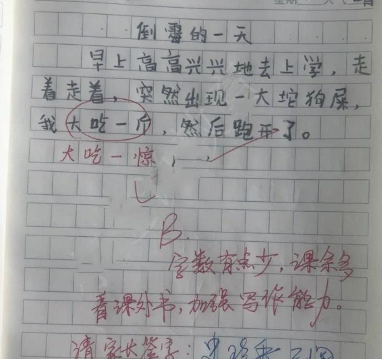 倒霉的一天
早上高高兴兴地去上学，走
着走着，突然出现一大坨狗屎，
我大吃一斤，然后跑开了。
大吃一惊，
B.
字数有点少，课余多
看课外书，加强写作能力。
请家长签字：